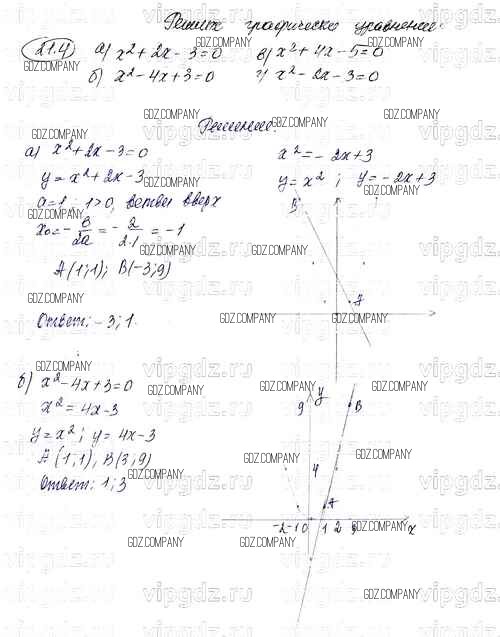 Решить графически уравнение:
21.4 а) x²+2x-3=0 в) x²+4x-5=0
б) x²-4x+3=0 г) x²-2x-3=0
Решение:
а) x²+2x-3=0
y=x²+2x-3
a=1; 1>0, ветви вверх
x₀=-в/2a=-2/2·1=-1
A(1;1); B(-3;9)
Ответ: -3;1.
x²=-2x+3
y=x²; y=-2x+3
B
A
б) x²-4x+3=0
x²=4x-3
y=x²; y=4x-3
A(1;1), B(3;9)
Ответ: 1;3
9 y B
4
A
-2 -1 0 1 2 3 x
GDZ.COMPANY
vipgdz.ru